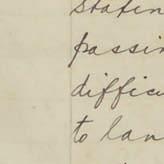 staten
passin
difficu
to lan